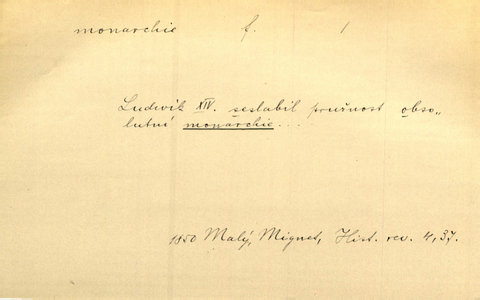 monarchie f. 1
Ludvík XIV. seslabil pružnost abso„
lutní monarchie...
1850 Malý, Mignet, Hist. rev. 4, 37.